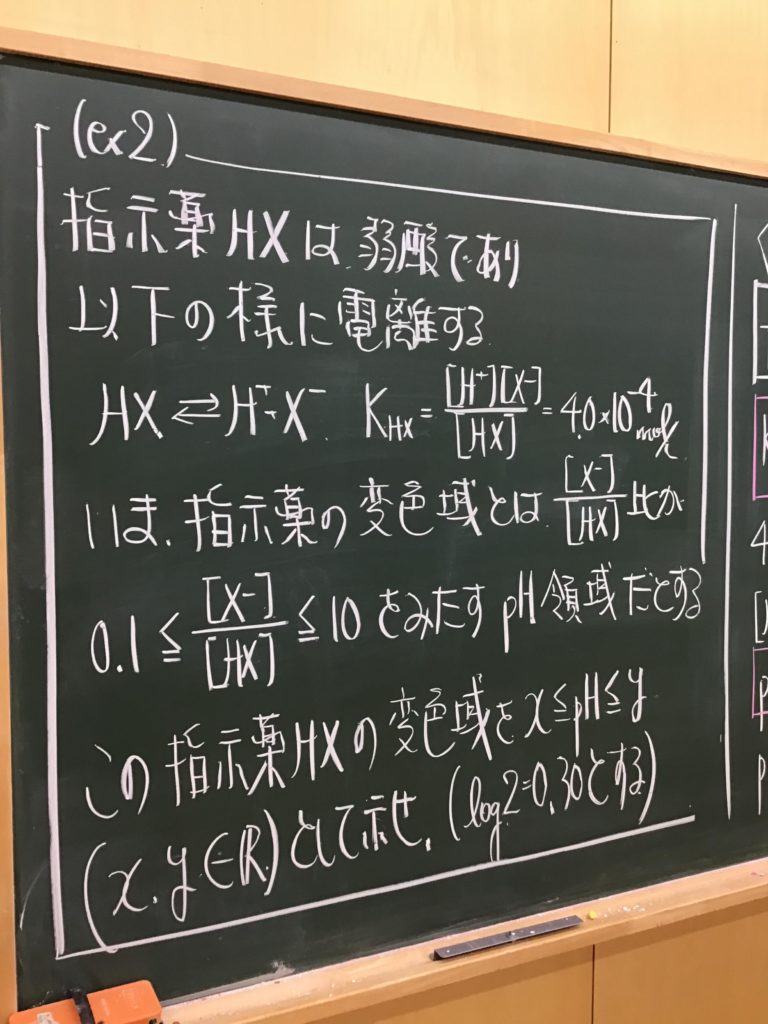 (ex2)
指示薬HXは弱酸であり
以下の様に電離する
HX ⇄ H⁺+X⁻ K_HX = [H⁺][X⁻]/[HX] = 4.0×10⁻⁴ mol/L
いま、指示薬の変色域とは [X⁻]/[HX] 比が
0.1 ≦ [X⁻]/[HX] ≦ 10 をみたす pH領域だとする
この指示薬HXの変色域を x≦pH≦y
(x, y∈ℝ)として示せ. (log2=0.30とする)